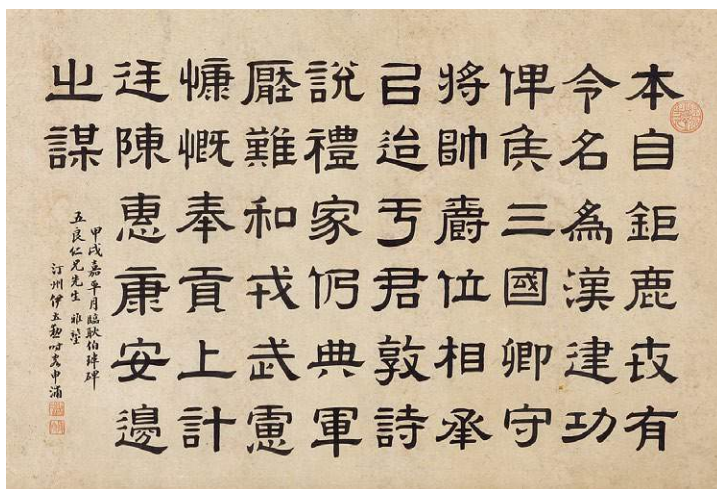 本自鉅鹿世有
令名爲漢建功
俾侯三國卿守
將帥爵位相承
以迨于君敦詩
說禮家仍典軍
壓難和戎武慮
慷慨奉貢上計
廷陳惠康安邊
之謀
甲戌嘉平月臨耿伯瑋碑
五良仁兄先生雅鑒
汀州伊立勳時客申浦